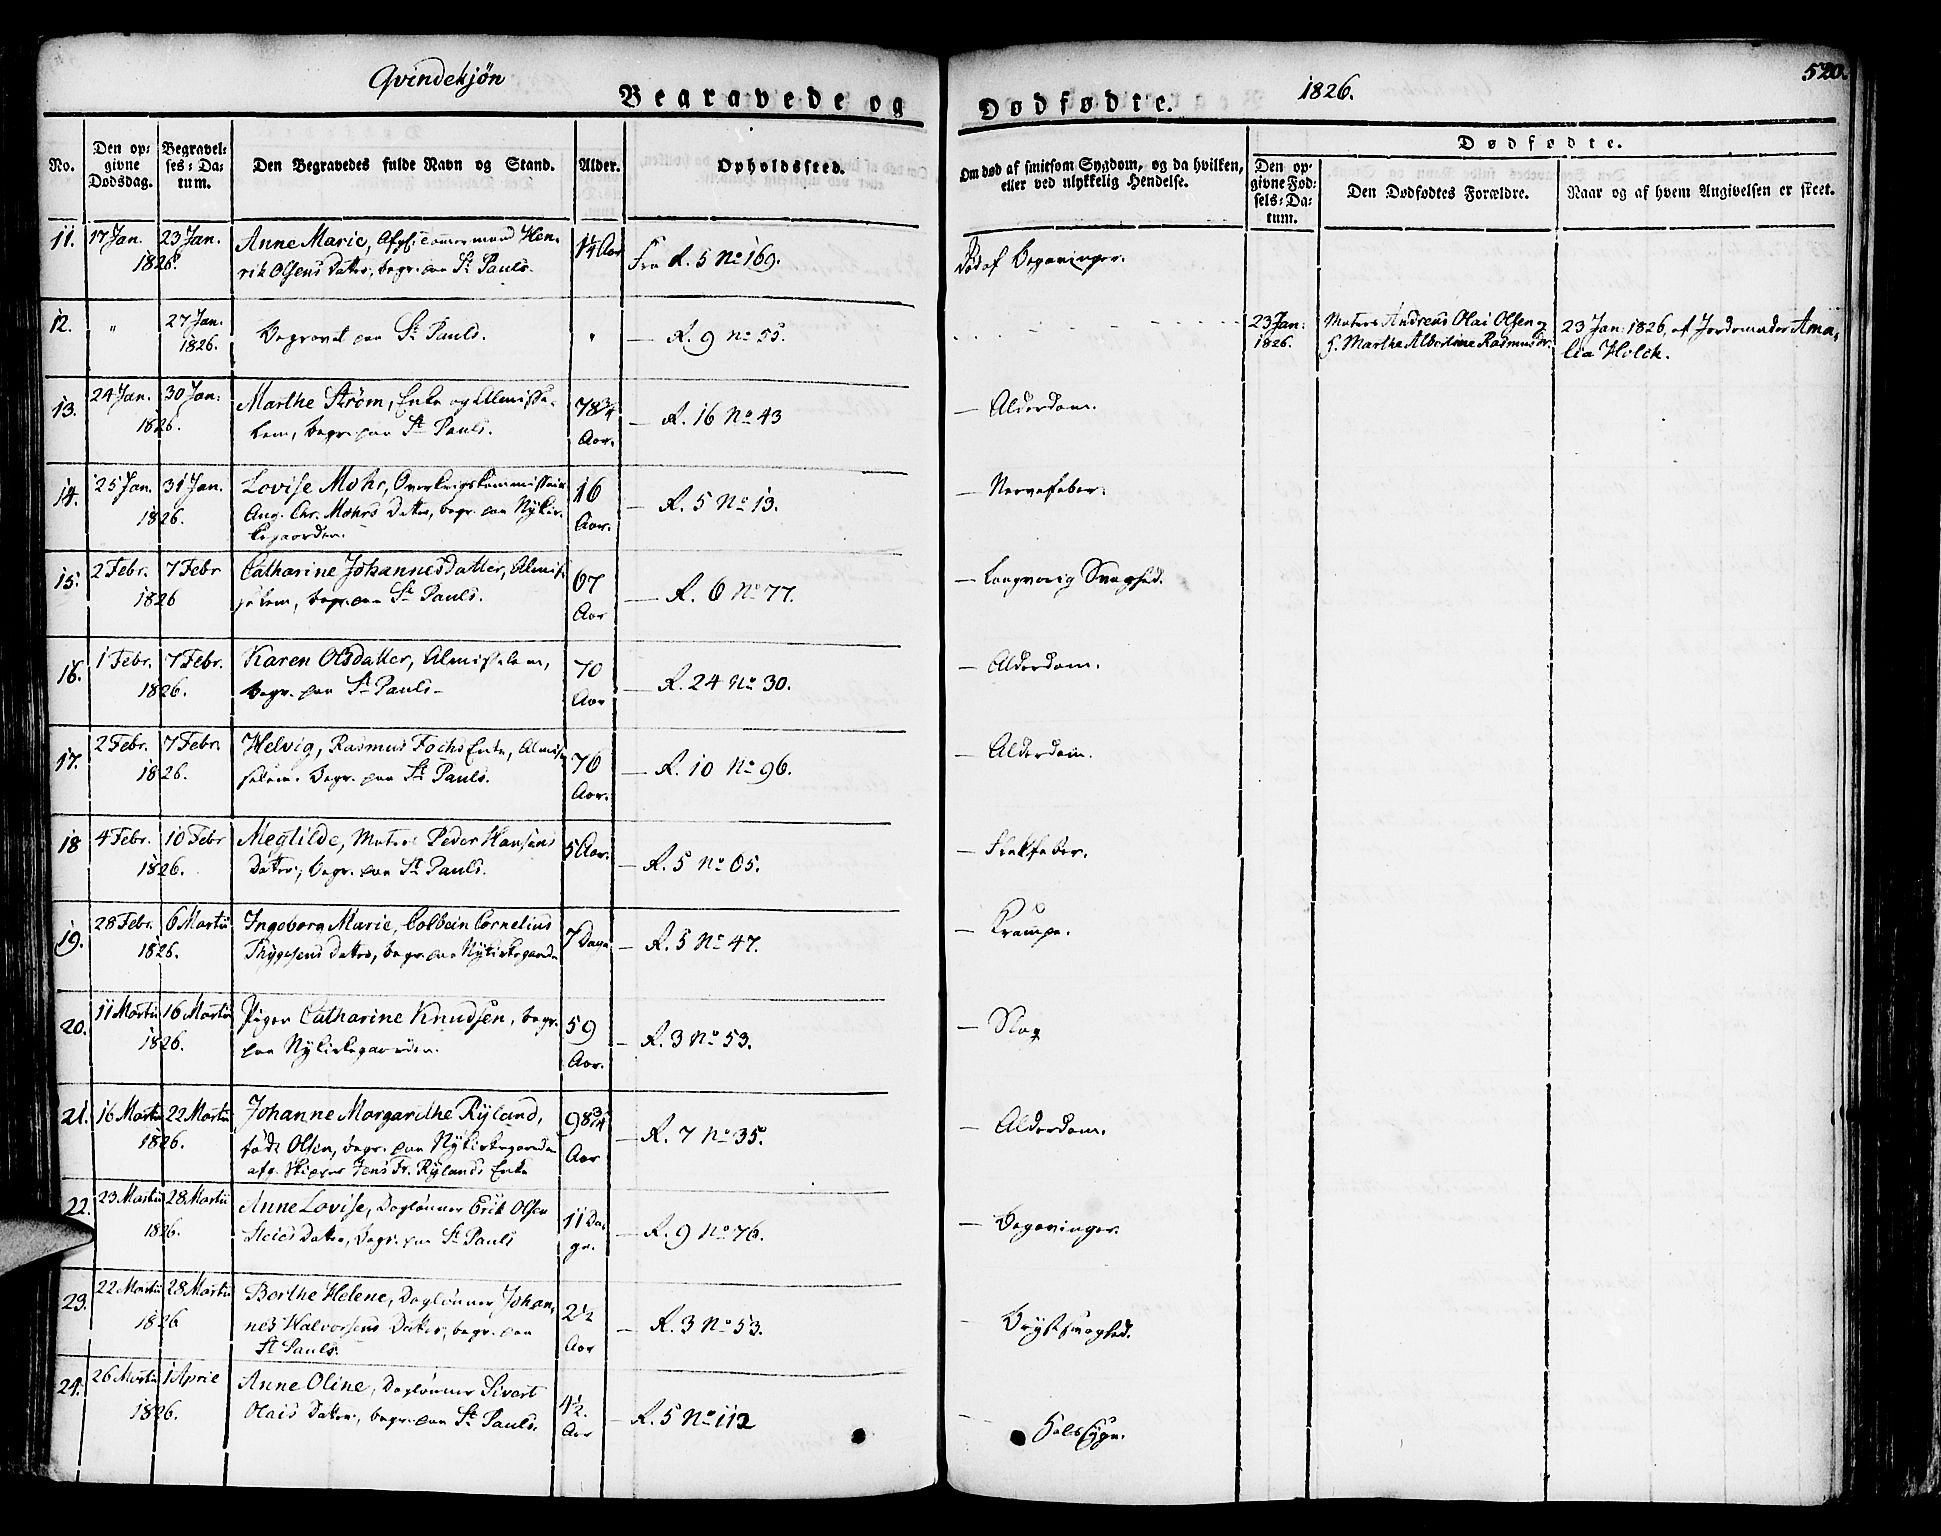 Qvindekjøn
Begravede og
Dødfødte.
1826.
520.
No.
Den opgivne Dødsdag.
Begravelses-Datum.
Den Begravedes fulde Navn og Stand.
Alder.
Opholdssted.
Om død af smitsom Sygdom, og da hvilken,
eller ved ulykkelig Hendelse.
Dødfødte.
Den opgivne Fødsels-Datum.
Den Dødfødtes Forældre.
Naar og af hvem Angivelsen er skeet.
11. 17 Jan. 23 Jan. 1826. Anne Marie, Hen-
rik Olsens Datter, begr. paa St Pauls. 1/4 Aar Fra R. 5 No 169. Død af Begavinger.
12. " 27 Jan. 1826. Begravet paa St Pauls. " — R. 9 No 55. 23 Jan: 1826. Matros Andreas Olai Olsen og
H. Marthe Albertine Rasmusdr. 23 Jan: 1826, af Jordemoder Ama-
lia Holck.
13. 24 Jan. 30 Jan: 1826. Marthe Strøm, Enke og Almisse-
lem, begr. paa St Pauls. 78 3/4 Aar. — R. 16 No 43 — Alderdom.
14. 25 Jan. 31 Jan. 1826. Lovise Mohr, Overkrigskommissair
Aug. Chr. Mohrs Datter, begr. paa Nykir-
kegaarden. 16 Aar. — R. 5 No 13. — Nervefeber.
15. 2 Febr. 7 Febr 1826 Catharine Johannesdatter, Almis-
selem, begr. paa St Pauls. 67 Aar — R. 6 No 77. — Langvarig Svaghed.
16. 1 Febr. 7 Febr. 1826. Karen Olsdatter, Almisselem,
begr. paa St Pauls- 70 Aar — R. 24 No 30. — Alderdom.
17. 2 Febr. 7 Febr. 1826. Helvig, Rasmus Fochs Enke, Almis-
selem. begr. paa St Pauls. 76 Aar. — R. 10 No 96. — Alderdom.
18 4 Febr. 10 Febr 1826. Megtilde, Matros Peder Hansens
Datter, begr. paa St Pauls. 5 Aar. — R. 5 No 65. — Flekfeber.
19. 28 Febr. 6 Martii 1826. Ingeborg Marie, Colbein Cornelius
Thygesens Datter, begr. paa Nykirkegaarde 7 Dage — R. 5 No 47. — Krampe.
20. 11 Martii 16 Martii 1826. Pigen Catharine Knudsen, begr.
paa Nykirkegaarden. 59 Aar. — R. 3 No 53. — Slag
21. 16 Martii 22 Martii 1826. Johanne Margarethe Ryland,
født Olsen, begr. paa Nykirkegaarden
afg. Skipper Jens Fr. Rylands Enke 98 3/4 Aar — R. 7 No 35. — Alderdom.
22. 23 Martii 28 Martii 1826. Anne Lovise, Daglønner Erik Olsen
Steies Datter, begr. paa St Pauls 11 Da-
ge. — R. 9 No 76. — Begavinger.
23. 22 Martii 28 Martii 1826 Berthe Helene, Daglønner Johan-
nes Halvorsens Datter, begr. paa
St Pauls. 2 1/2 Aar — R. 3 No 53. — Brystsvaghed.
24. 26 Martii 1 April 1826. Anne Oline, Daglønner Sivert
Olais Datter, begr. paa St Pauls. 4 1/2. Aar — R. 5 No 112 — Halssyge.